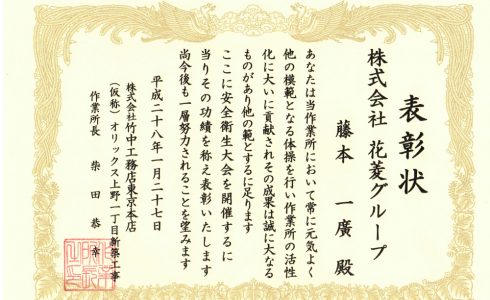 表彰状
株式会社 花菱グループ
藤本 一廣 殿
あなたは当作業所において常に元気よく
他の模範となる体操を行い作業所の活性
化に大いに貢献されその成果は誠に大なる
ものがあり他の範とするに足ります
ここに安全衛生大会を開催するに
当りその功績を称え表彰いたします
尚今後も一層努力されることを望みます
平成二十八年一月二十七日
株式会社竹中工務店東京本店
(仮称)オリックス上野一丁目新築工事
作業所長 柴田 恭幸